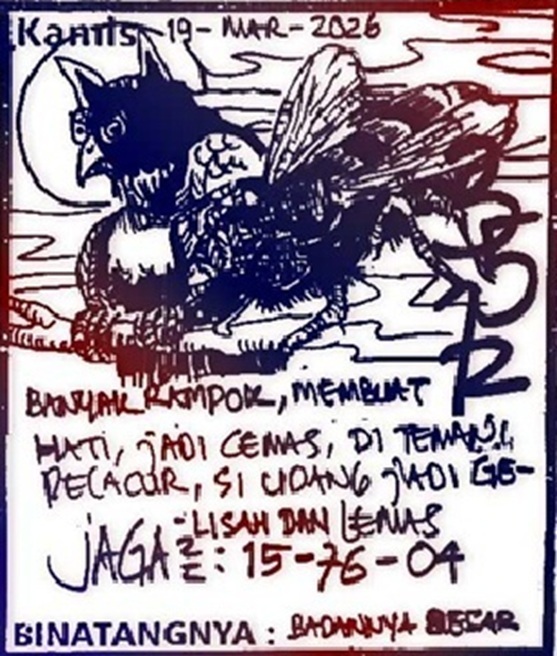 Kamis 19-MAR-2026
BANYAK RAMPOK, MEMBUAT
HATI, JADI CEMAS, DI TEMANI
PELACUR, SI UDANG JADI GE-
-LISAH DAN LEMAS
JAGA2 : 15-76-04
BINATANGNYA : BADANNYA BESAR